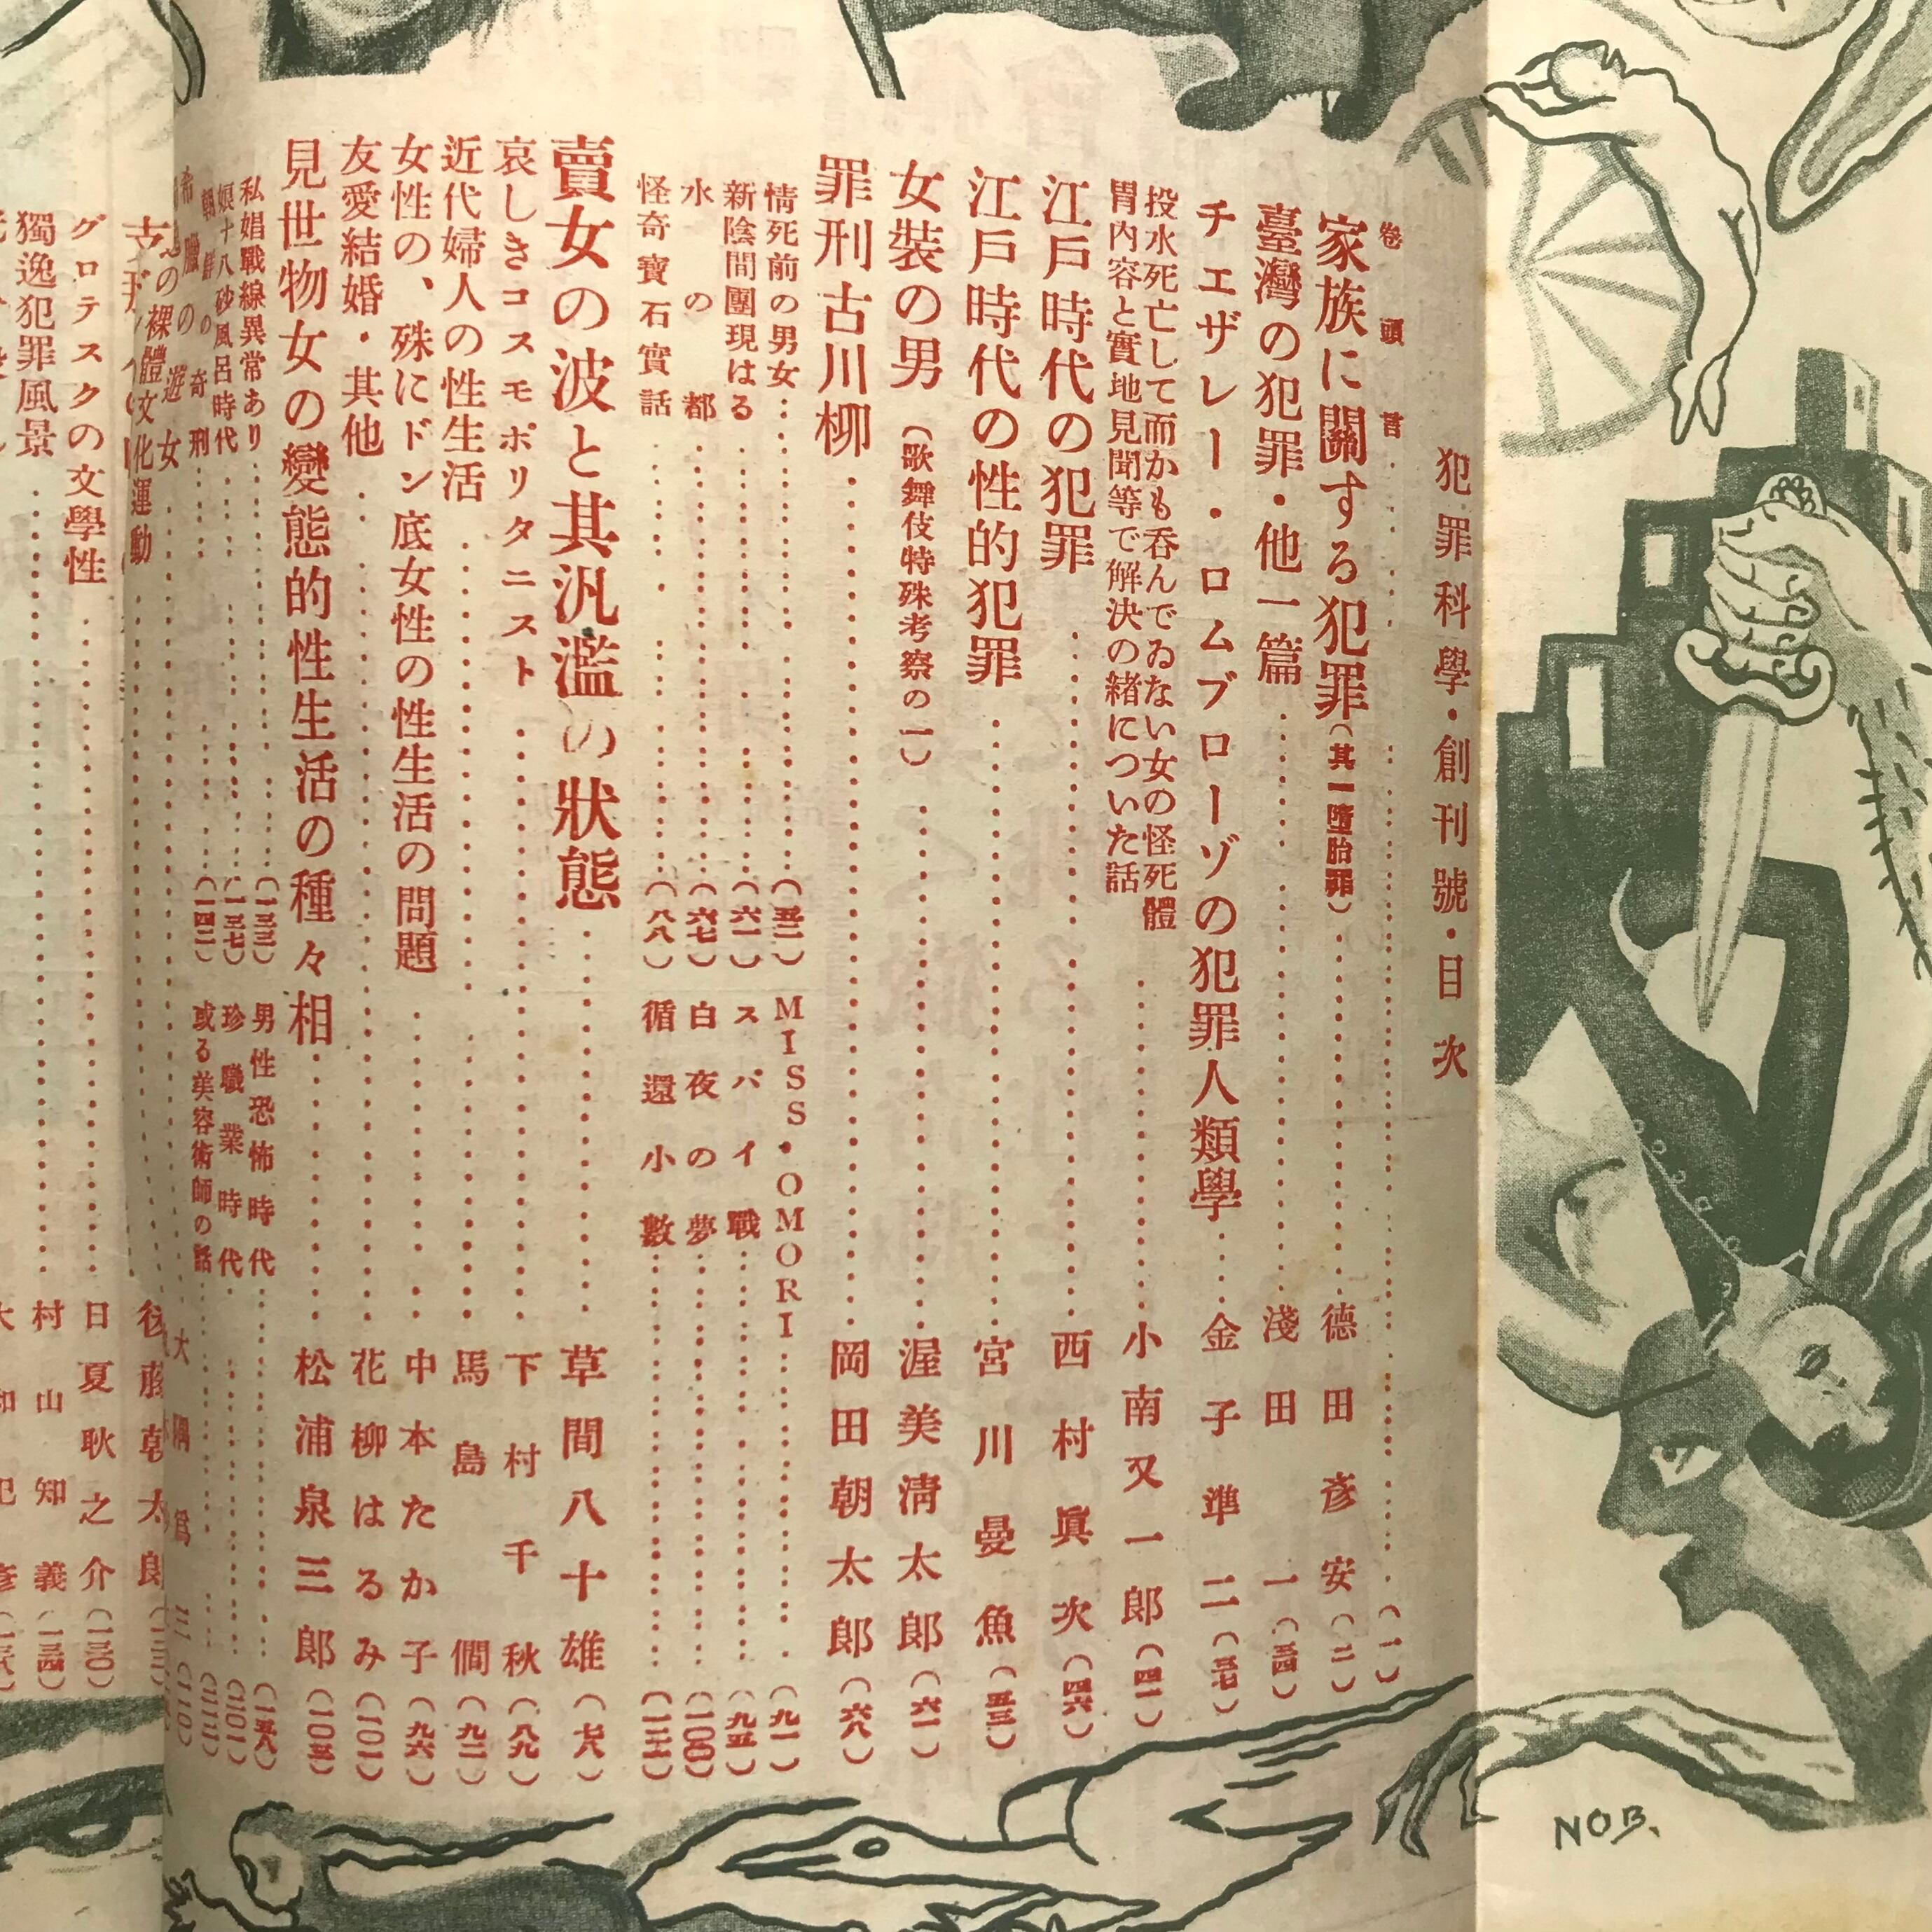 犯罪科學・創刊號・目次
卷頭言 (一)
家族に關する犯罪 (其一墮胎罪) 德田彥安 (二)
臺灣の犯罪・他一篇 淺田一 (三四)
チエザレー・ロムブローゾの犯罪人類學 金子準二 (三七)
投水死亡して而かも呑んでゐない女の怪死體
胃内容と實地見聞等で解決の緖についた話 小南又一郎 (四一)
江戶時代の犯罪 西村眞次 (四六)
江戶時代の性的犯罪 宮川曼魚 (五三)
女裝の男 (歌舞伎特殊考察の一) 渥美淸太郎 (六一)
罪刑古川柳 岡田朝太郎 (六八)
情死前の男女 (五二)
MISS・OMORI (九一)
新陰間團現はる (六一)
スパイ戰 (九五)
水の都 (六七)
白夜の夢 (一〇〇)
怪奇寶石實話 (八八)
循還小數
賣女の波と其汎濫の狀態 草間八十雄 (七八)
哀しきコスモポリタニスト 下村千秋 (八九)
近代婦人の性生活 馬島僩 (九二)
女性の、殊にドン底女性の性生活の問題 中本たか子 (九六)
友愛結婚・其他 花柳はるみ (一〇一)
見世物女の變態的性生活の種々相 松浦泉三郎 (一〇三)
私娼戰線異常あり (一三三)
男性恐怖時代 (一五八)
娘十八砂風呂時代 (一三七)
珍職業時代
朝鮮の奇刑 (一四二)
或る美容術師の話
希臘の遊女
の裸體文化運動 大隅爲三
後藤朝太郎
グロテスクの文學性 日夏耿之介 (一三〇)
獨逸犯罪風景 村山知義 (一三四)
NOB.